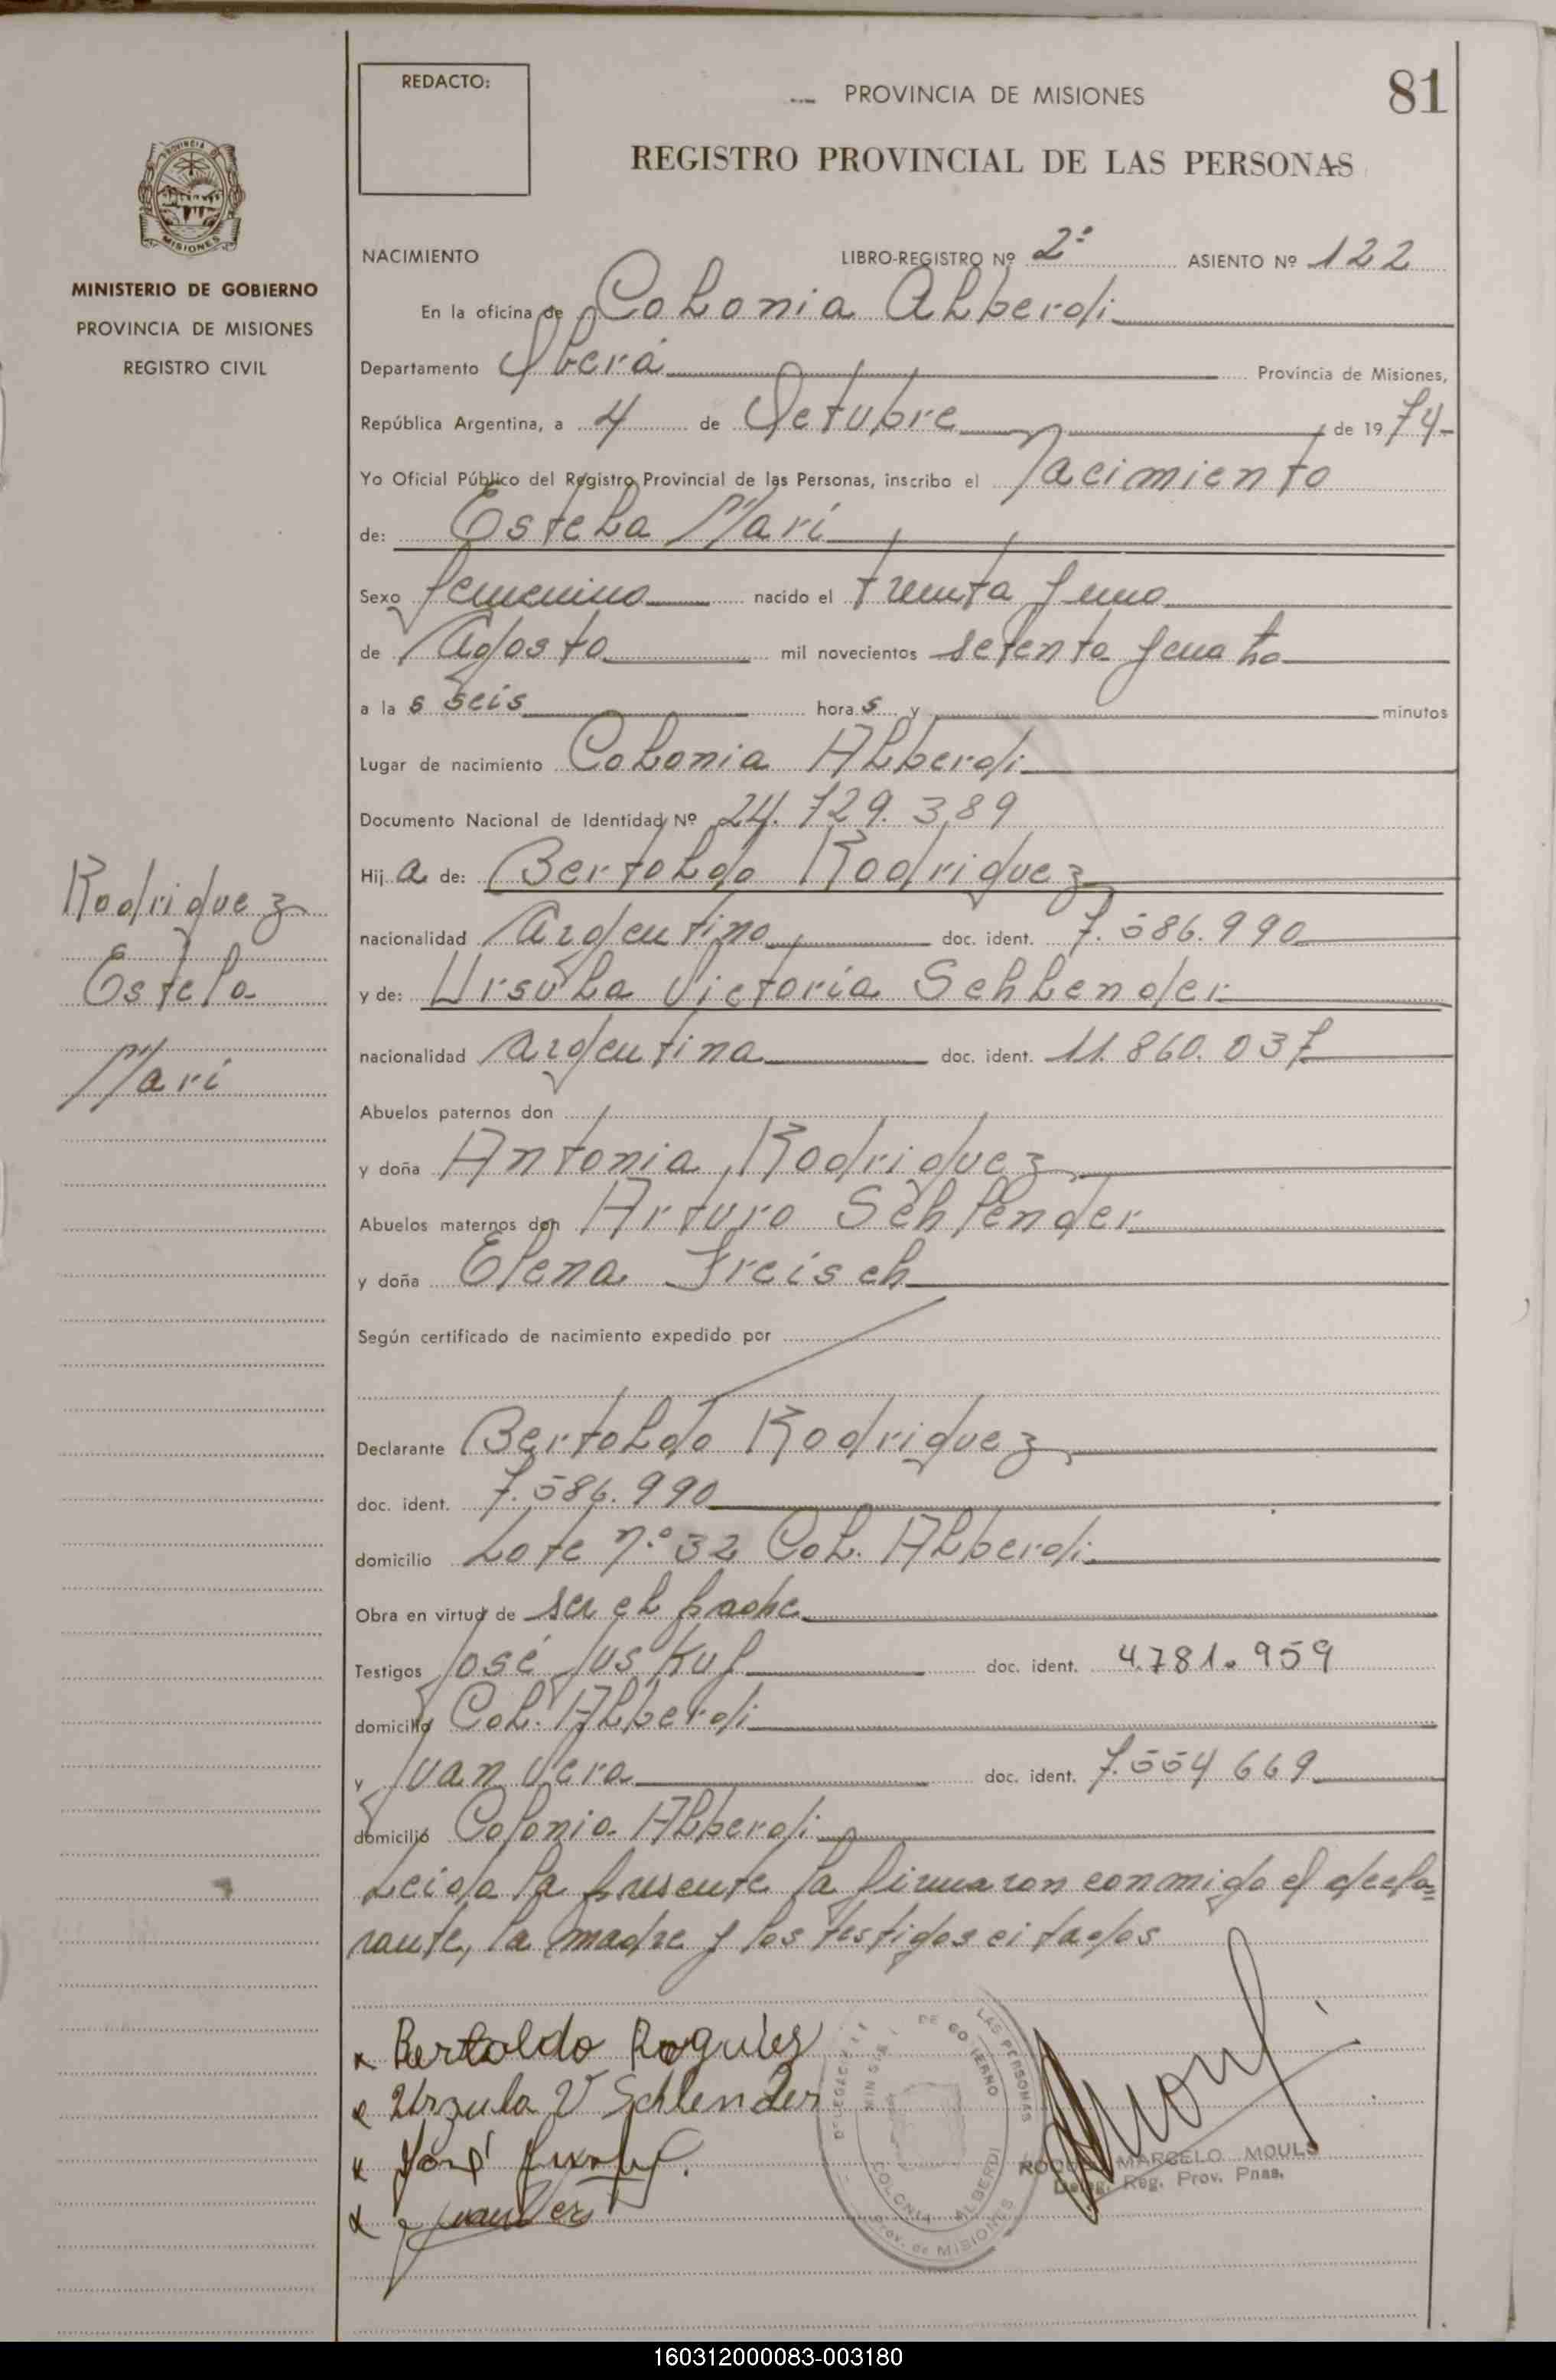 REDACTO:
PROVINCIA DE MISIONES
81
REGISTRO PROVINCIAL DE LAS PERSONAS
PROVINCIA
MISIONES
MINISTERIO DE GOBIERNO
PROVINCIA DE MISIONES
REGISTRO CIVIL
NACIMIENTO LIBRO-REGISTRO Nº 2º ASIENTO Nº 122
En la oficina de Colonia Alberdi
Departamento Oberá Provincia de Misiones,
República Argentina, a 4 de Octubre de 1974-
Yo Oficial Público del Registro Provincial de las Personas, inscribo el Nacimiento
de: Estela Mari
Sexo femenino nacido el treinta y uno
de Agosto mil novecientos setenta y cuatro
a la s seis hora s y minutos
Lugar de nacimiento Colonia Alberdi
Documento Nacional de Identidad Nº 24.729.389
Hij a de: Bertoldo Rodriguez
nacionalidad argentino doc. ident. 7.586.990
y de: Ursula Victoria Schlender
nacionalidad argentina doc. ident. 11.860.037
Abuelos paternos don
y doña Antonia Rodriguez
Abuelos maternos don Arturo Schlender
y doña Elena Freisch
Según certificado de nacimiento expedido por
Declarante Bertoldo Rodriguez
doc. ident. 7.586.990
domicilio Lote nº 32 Col. Alberdi
Obra en virtud de ser el padre
Testigos José Juskuf doc. ident. 4.781.959
domicilio Col. Alberdi
y Juan Vera doc. ident. 7.554 669
domicilio Colonia Alberdi
Leida la presente la firmaron conmigo el decla=
rante, la madre y los testigos citados
Rodriguez
Estela
Mari
x Bertoldo
x Urzula V Schlender
x José
x Juan Vera
DE GOBIERNO
LAS PERSONAS
COLONIA ALBERDI
Prov. de MISIONES
MARCELO MOULS
Deleg. Reg. Prov. Pnas.
160312000083-003180